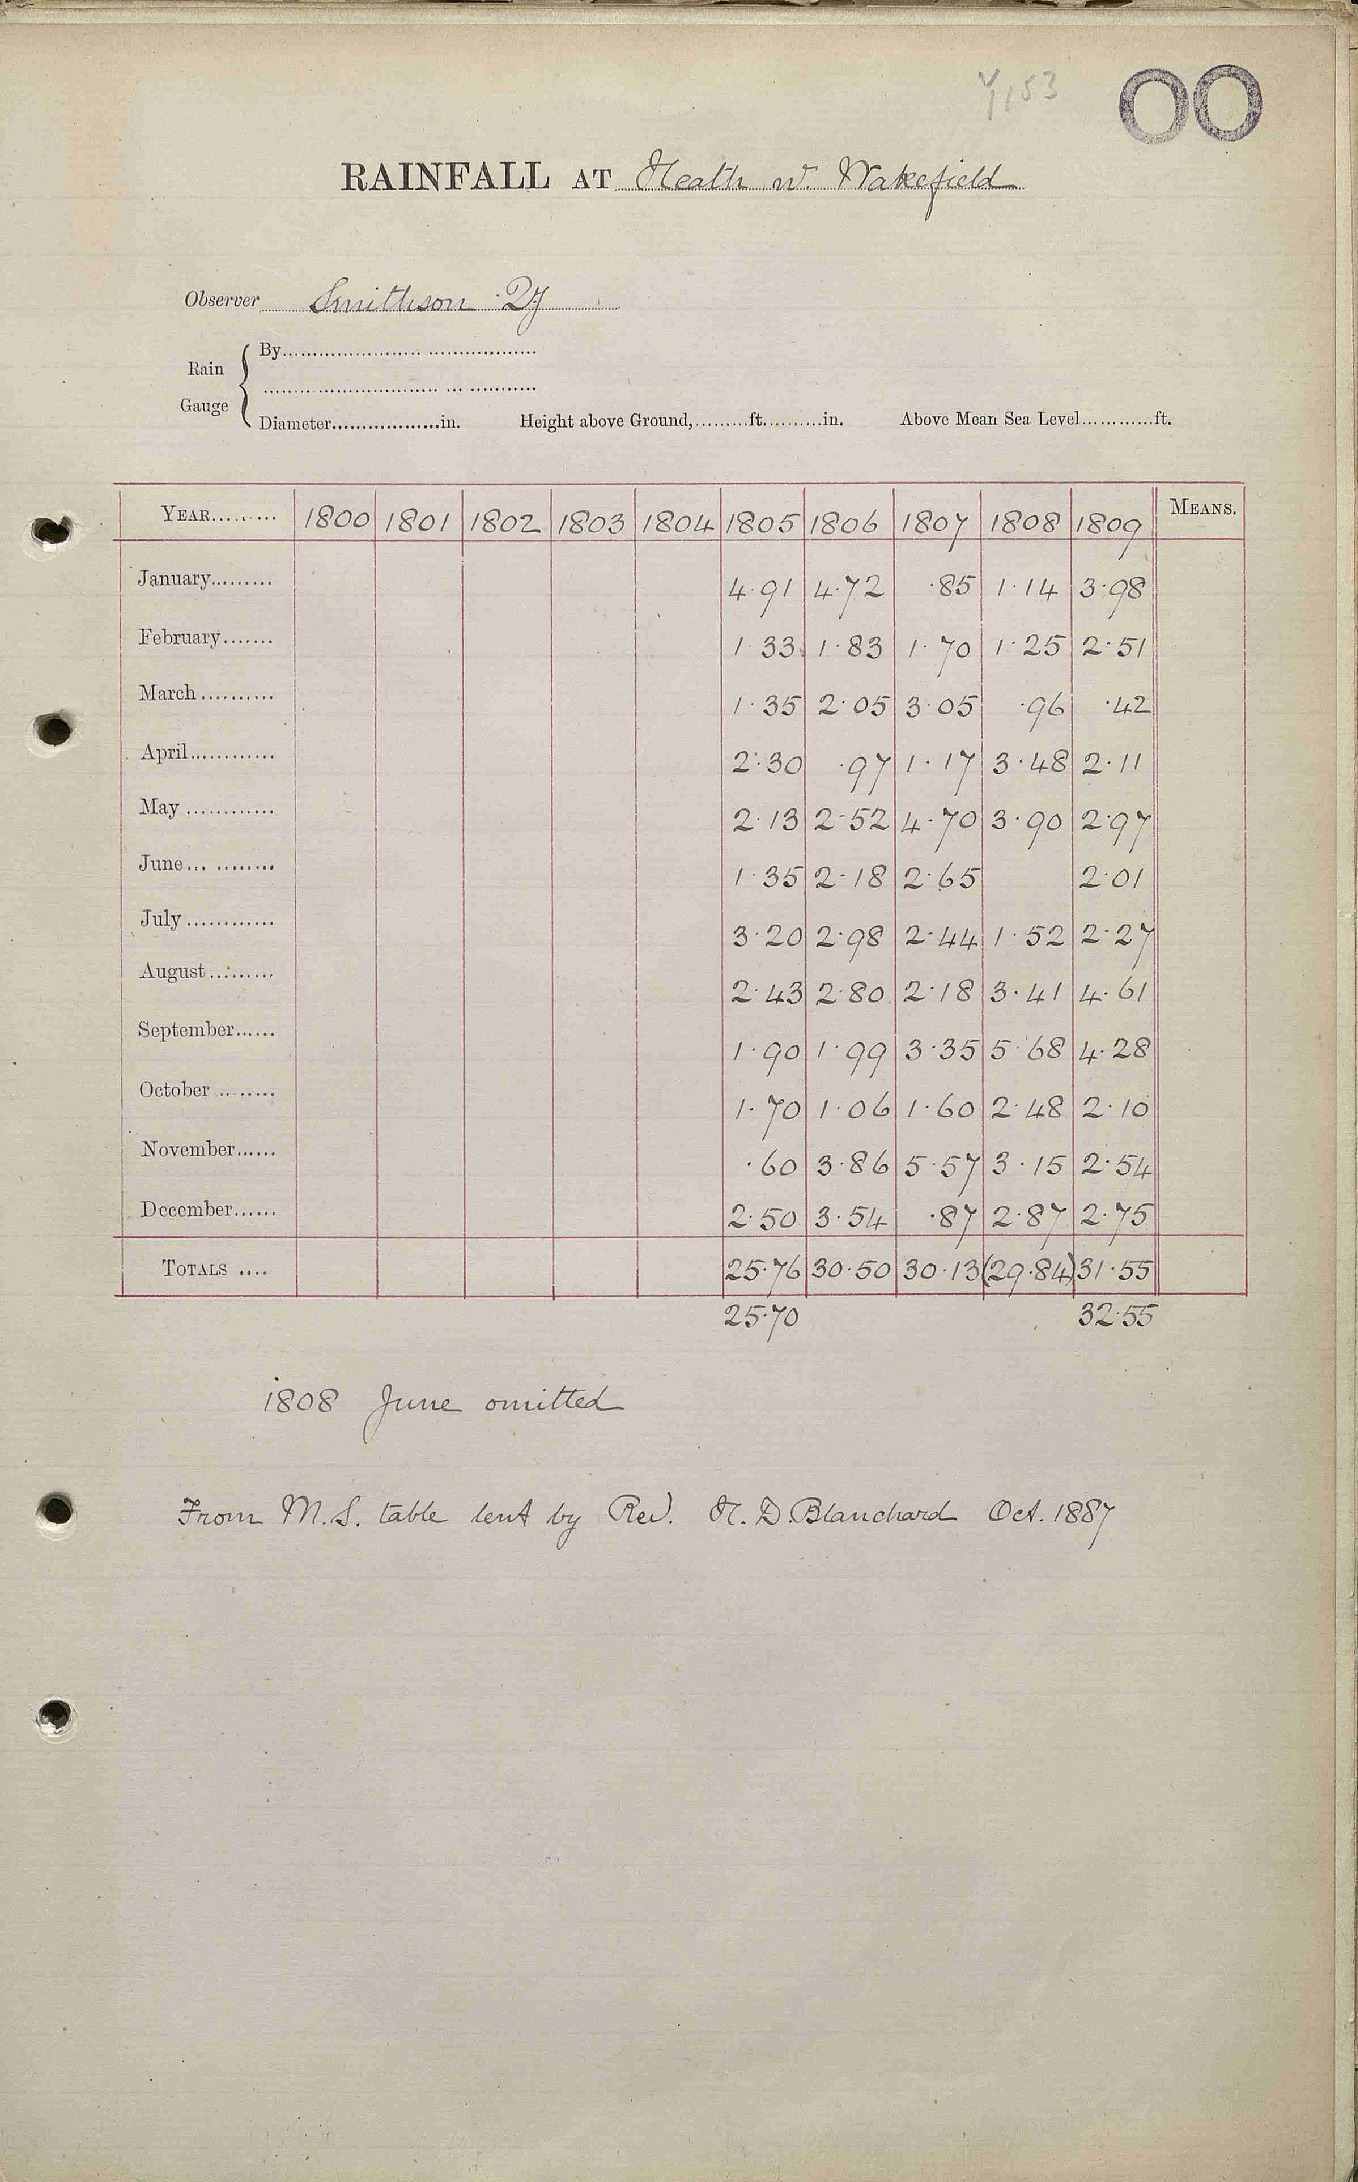 Y153 OO
RAINFALL AT Heath nr. Wakefield
Observer Smithson Qy
Rain Gauge
By
Diameter in. Height above Ground, ft. in. Above Mean Sea Level ft.
YEAR 1800 1801 1802 1803 1804 1805 1806 1807 1808 1809 MEANS.
January 4·91 4·72 ·85 1·14 3·98
February 1·33 1·83 1·70 1·25 2·51
March 1·35 2·05 3·05 ·96 ·42
April 2·30 ·97 1·17 3·48 2·11
May 2·13 2·52 4·70 3·90 2·97
June 1·35 2·18 2·65 2·01
July 3·20 2·98 2·44 1·52 2·27
August 2·43 2·80 2·18 3·41 4·61
September 1·90 1·99 3·35 5·68 4·28
October 1·70 1·06 1·60 2·48 2·10
November ·60 3·86 5·57 3·15 2·54
December 2·50 3·54 ·87 2·87 2·75
TOTALS 25·76 30·50 30·13 (29·84) 31·55
25·70 32·55
1808 June omitted
From M.S. table lent by Rev. H. D. Blanchard Oct. 1887